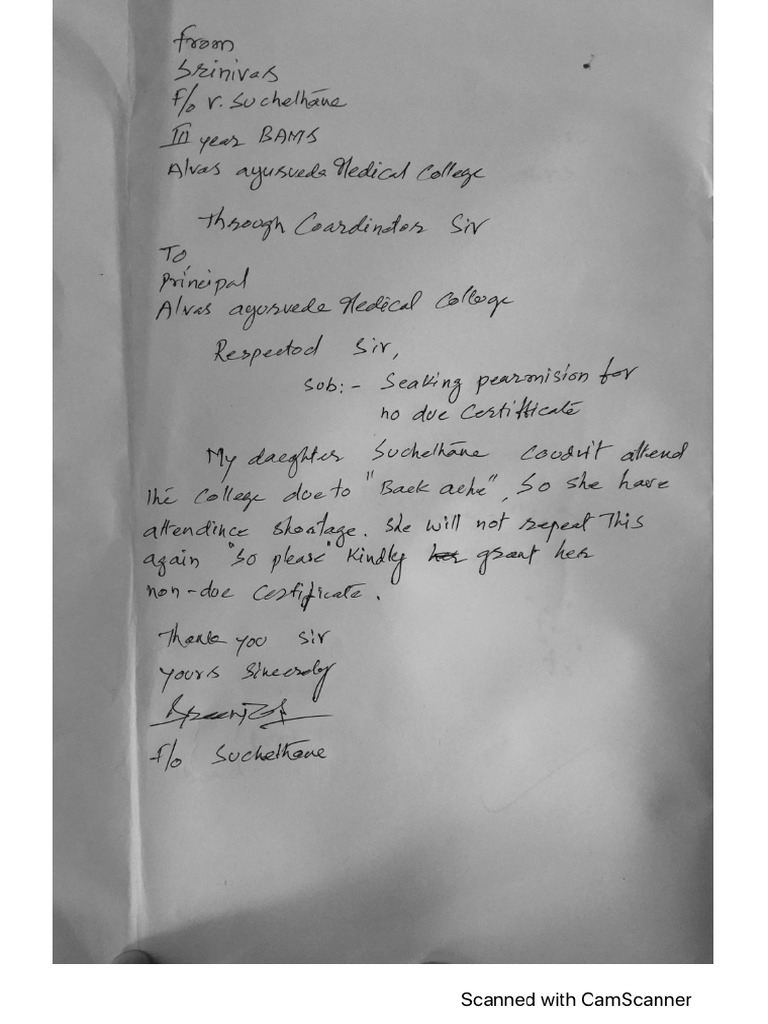 from
Srinivas
F/o V. Suchethane
III year BAMS
Alvas ayurveda Medical College
Through Coardinator Sir
To,
Principal
Alvas ayurveda Medical College
Respected Sir,
Sub:- Seaking pearmision for
no due Certifficate
My daeghter Suchethane Coudn't attend
The College due to "Back ache", So she have
attendince shoatage. She will not repeat This
again "So please" Kindly her grant her
non-doe Certificate.
Thank you Sir
yours Sincerely
F/o Suchethane
Scanned with CamScanner